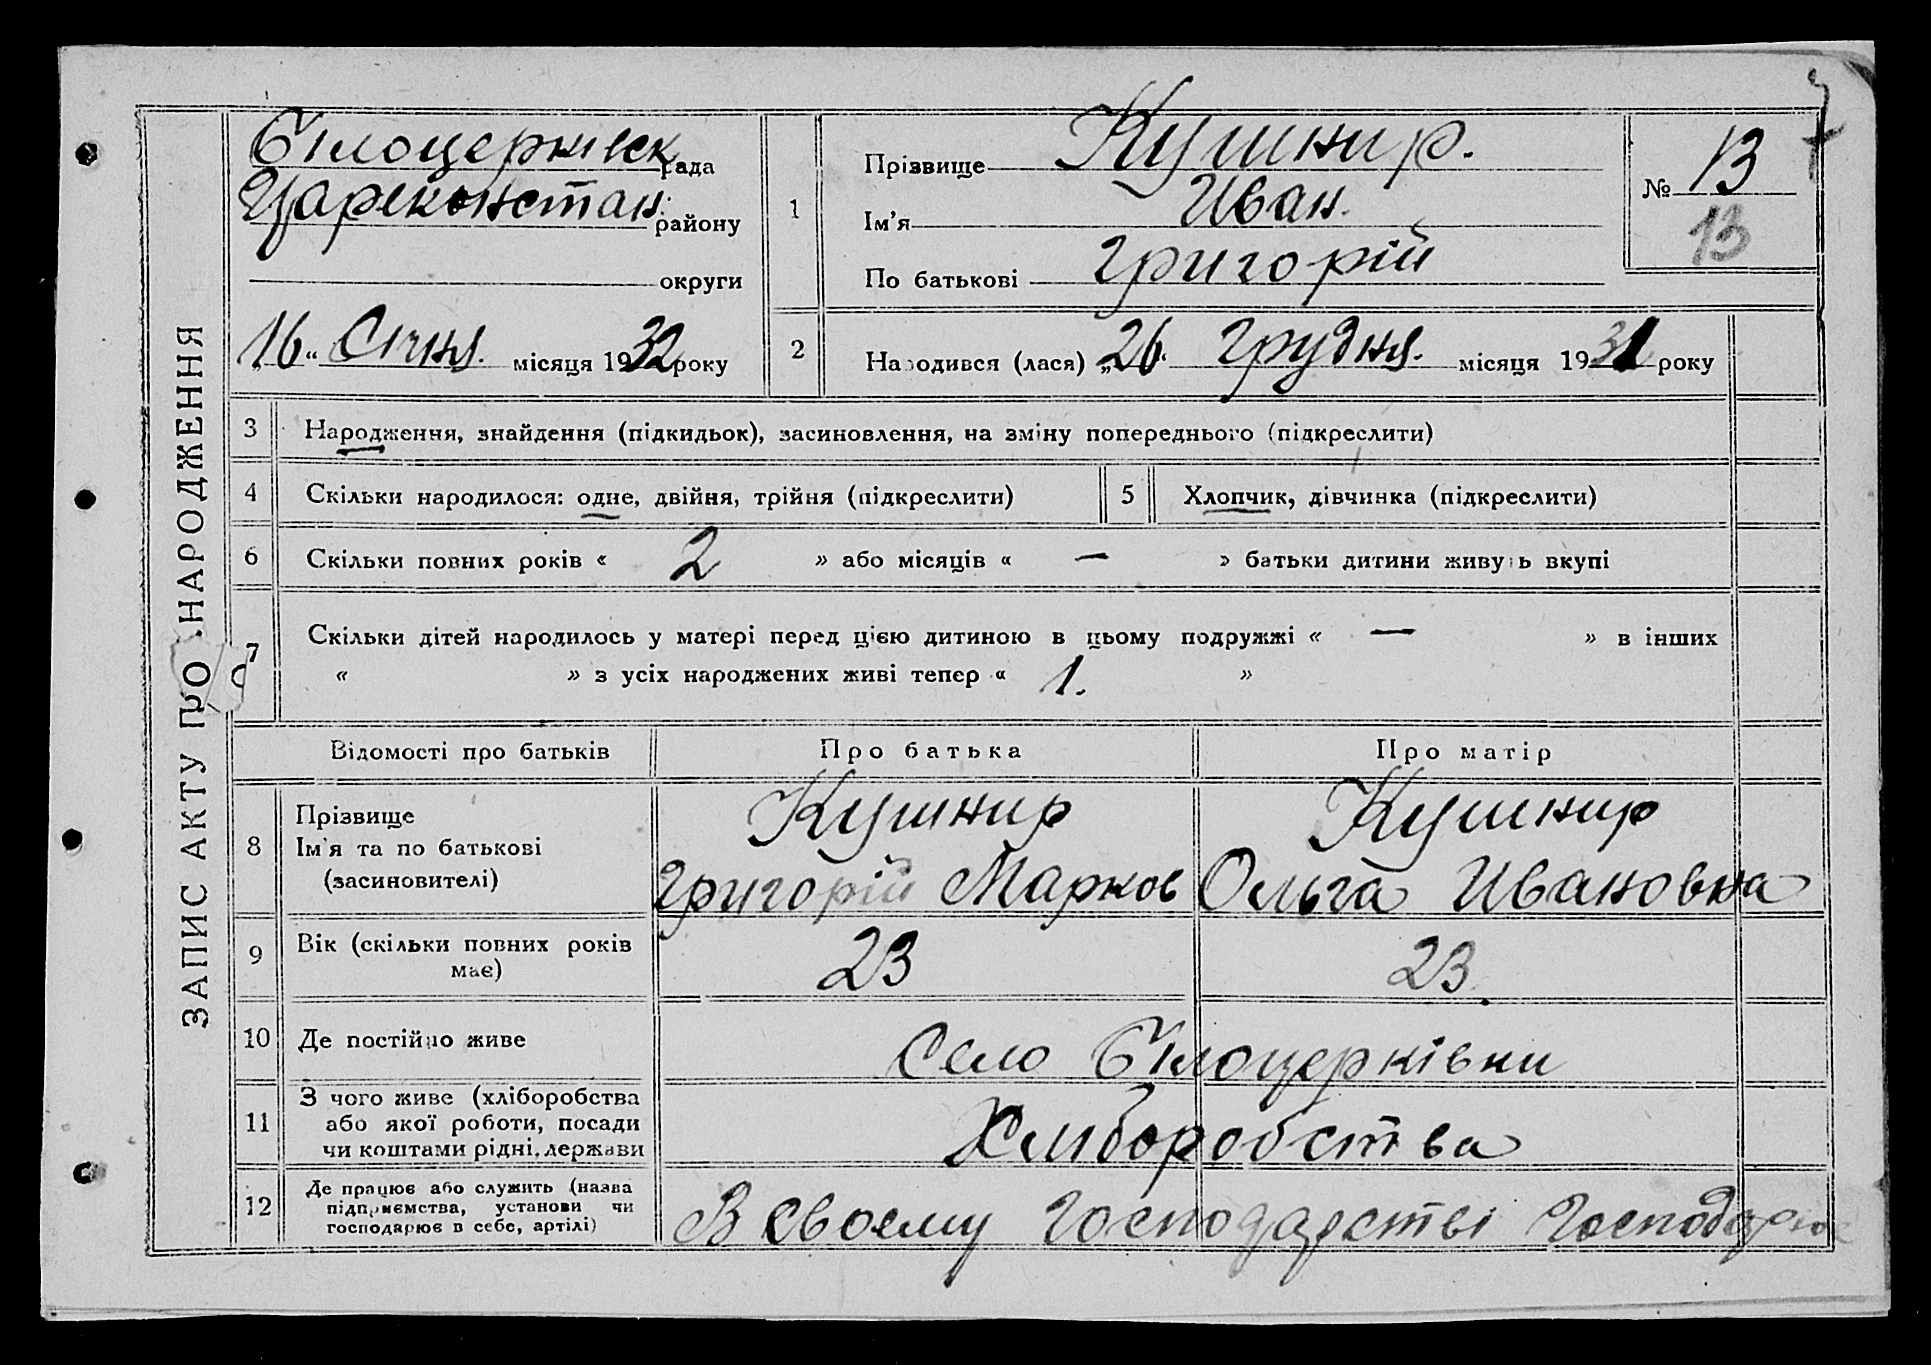 ЗАПИС АКТУ ПРО НАРОДЖЕННЯ
Білоцерківск рада
Цареконстан. району
округи
"16" Січня. місяця 1932 року
1
Прізвище Кушнир.
Ім'я Иван.
По батькові Григорій
№ 13
13
2
Народився (лася) „26" Грудня. місяця 1931 року
3 Народження, знайдення (підкидьок), засиновлення, на зміну попереднього (підкреслити)
4 Скільки народилося: одне, двійня, трійня (підкреслити)
5 Хлопчик, дівчинка (підкреслити)
6 Скільки повних років « 2 » або місяців « — » батьки дитини живуть вкупі
7 Скільки дітей народилось у матері перед цією дитиною в цьому подружжі « — » в інших
« » з усіх народжених живі тепер « 1. »
Відомості про батьків Про батька Про матір
8 Прізвище
Ім'я та по батькові
(засиновителі)
Кушнир
Григорій Марков
Кушнир
Ольга Ивановна
9 Вік (скільки повних років
має)
23
23.
10 Де постійно живе
Село Білоцерківки
11 З чого живе (хліборобства
або якої роботи, посади
чи коштами рідні, держави
Хліборобства
12 Де працює або служить (назва
підприємства, установи чи
господарює в себе, артілі)
В своему Господарстві Господарює